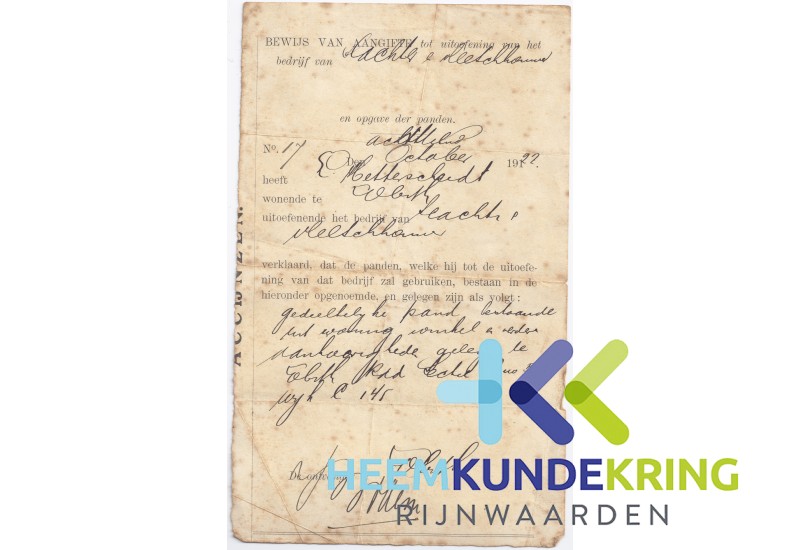 BEWIJS VAN AANGIFTE tot uitoefening van het
bedrijf van Slachter & vleeschhouwer
en opgave der panden.
No. 17 Den October 1922.
heeft Metterscheidt
wonende te
uitoefenende het bedrijf van slachter &
vleeschhouwer
verklaard, dat de panden, welke hij tot de uitoefe-
ning van dat bedrijf zal gebruiken, bestaan in de
hieronder opgenoemde, en gelegen zijn als volgt:
gedeeltelijke pand bestaande
uit woning winkel & verder
gelegen te
wijk C 145
De ontvanger
ACCIJNZEN.
HEEMKUNDEKRING
RIJNWAARDEN